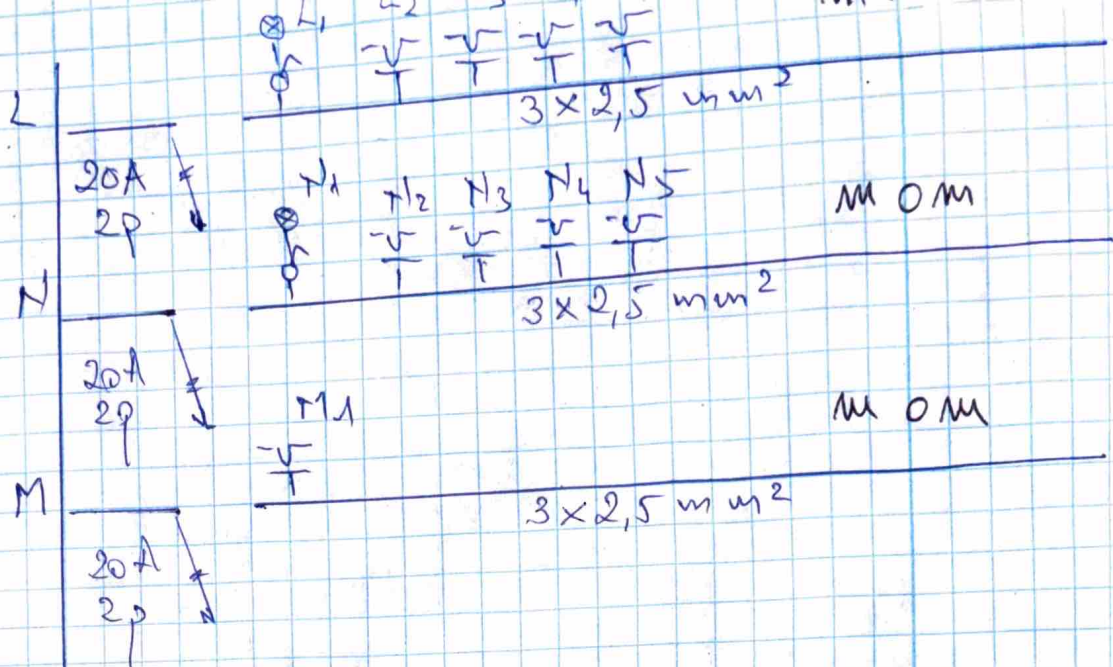 L1
L
3 x 2,5 mm²
20A
2p
N1 N2 N3 N4 N5
mom
N
3 x 2,5 mm²
20A
2p
M1
mom
M
3 x 2,5 mm²
20A
2p